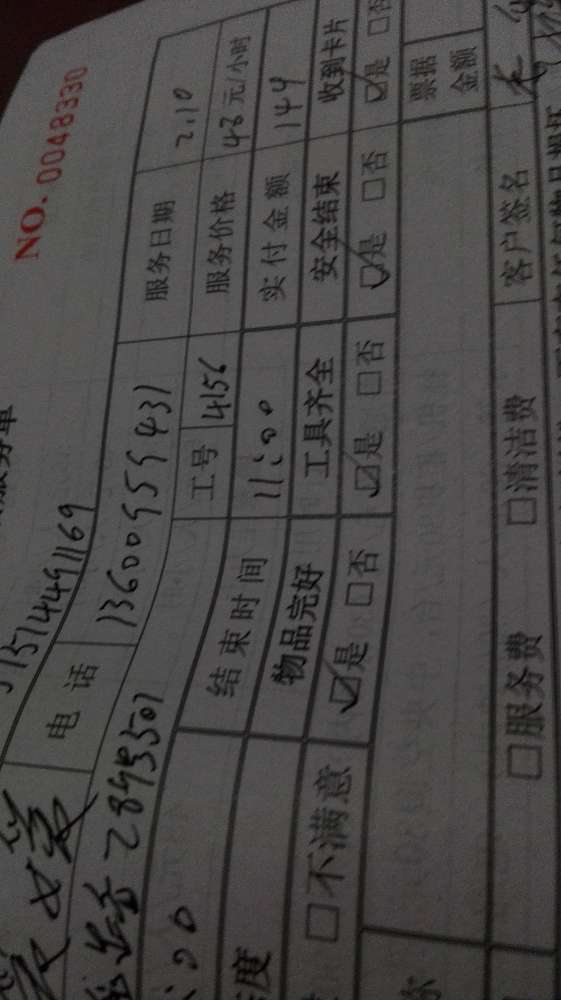 NO. 0048330
务单
15144491169
电话 13600959431 服务日期 2.10
2898350
工号 4156 服务价格 48元/小时
:00 结束时间 11:00 实付金额 144
度 物品完好 工具齐全 安全结束 收到卡片
□不满意 ☑是 □否 ☑是 □否 ☑是 □否 ☑是 □否
票据金额
□服务费 □清洁费 客户签名